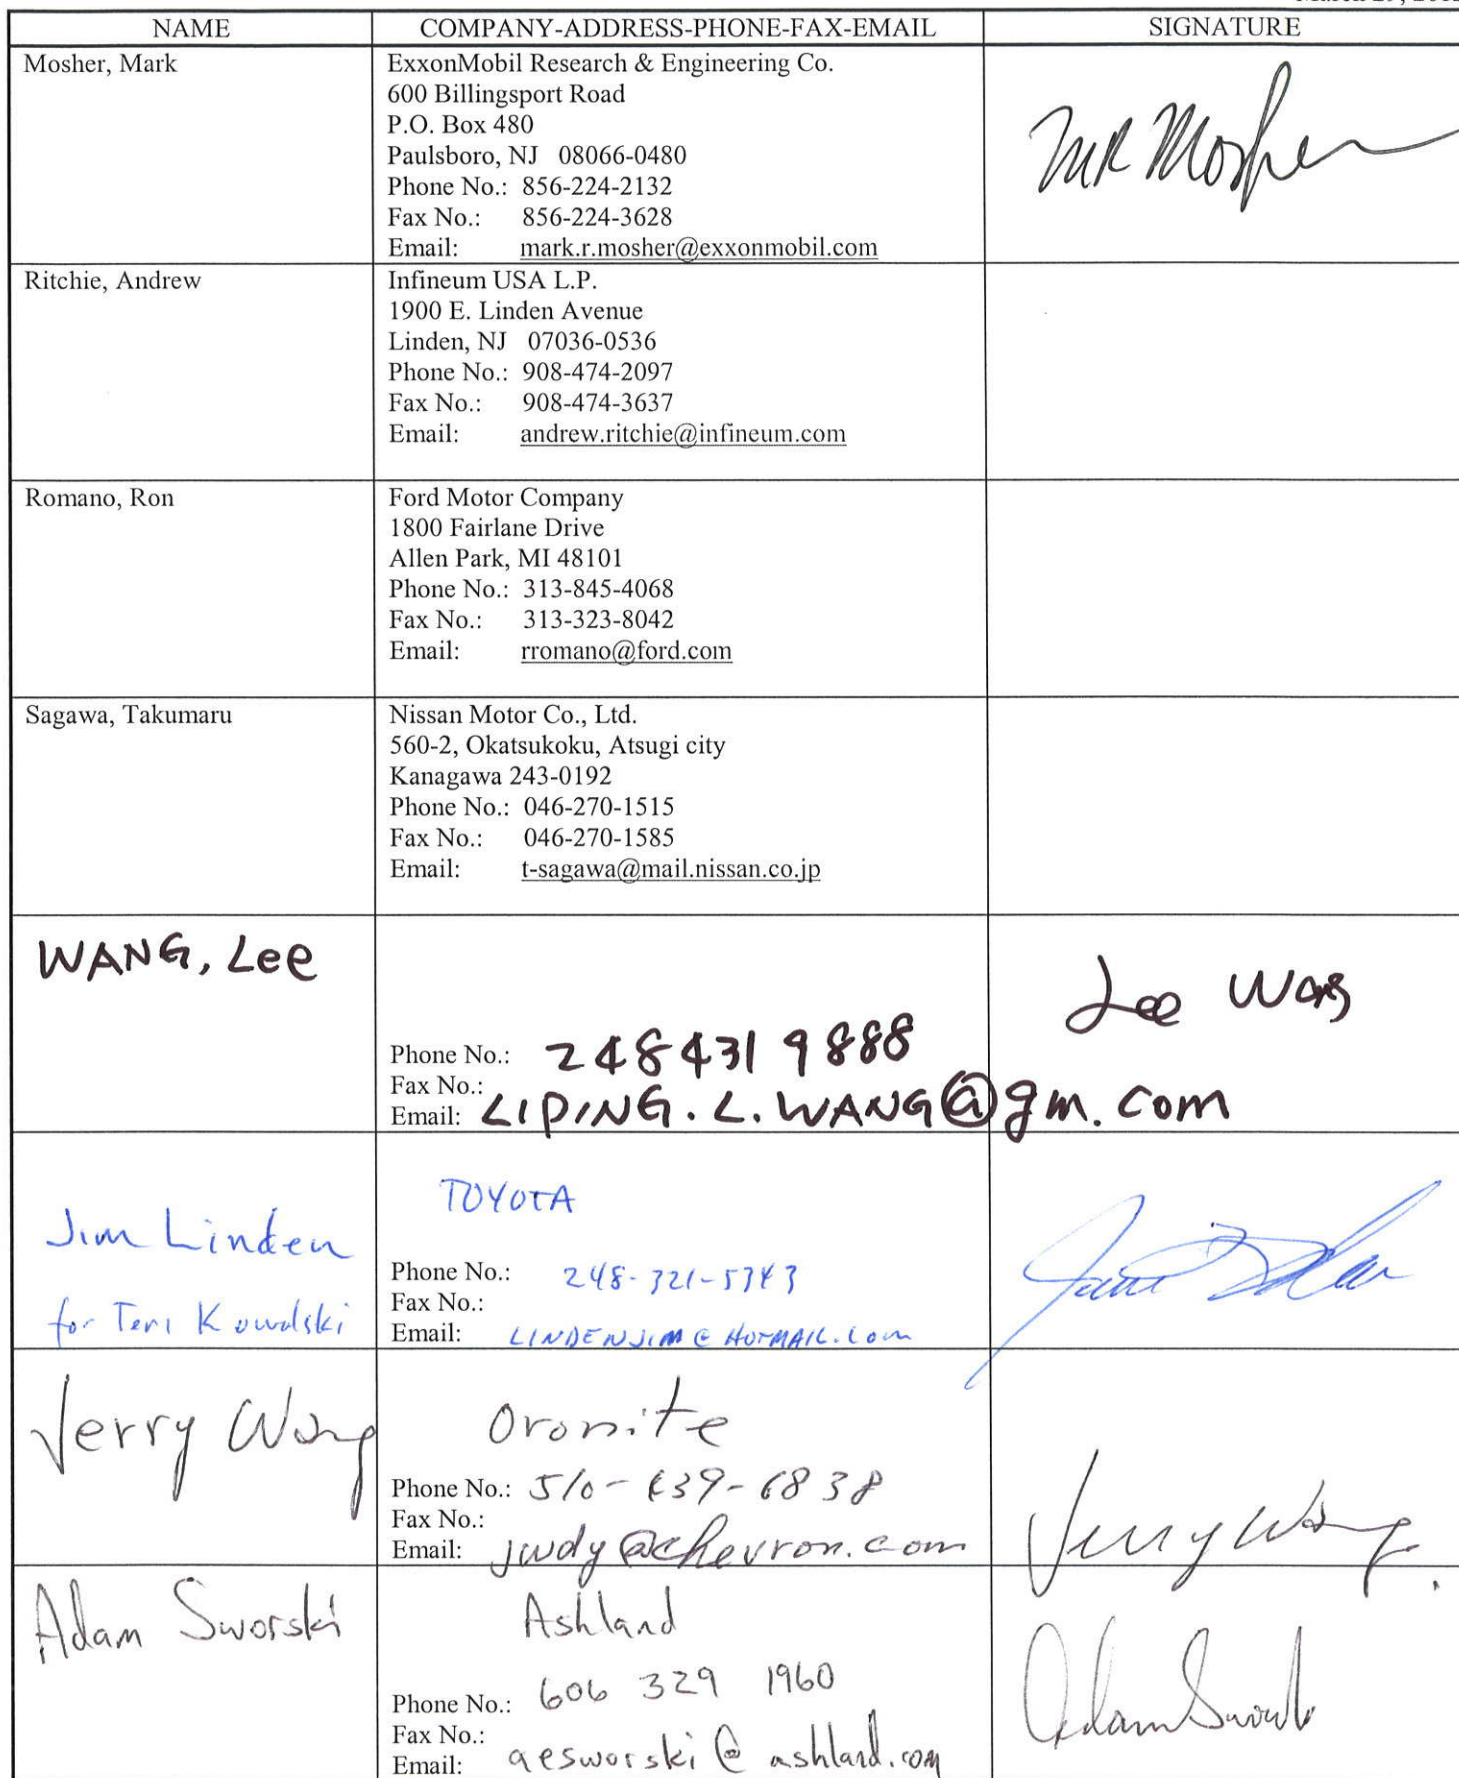 NAME COMPANY-ADDRESS-PHONE-FAX-EMAIL SIGNATURE
Mosher, Mark
ExxonMobil Research & Engineering Co.
600 Billingsport Road
P.O. Box 480
Paulsboro, NJ 08066-0480
Phone No.: 856-224-2132
Fax No.: 856-224-3628
Email: mark.r.mosher@exxonmobil.com
MR Mosher
Ritchie, Andrew
Infineum USA L.P.
1900 E. Linden Avenue
Linden, NJ 07036-0536
Phone No.: 908-474-2097
Fax No.: 908-474-3637
Email: andrew.ritchie@infineum.com
Romano, Ron
Ford Motor Company
1800 Fairlane Drive
Allen Park, MI 48101
Phone No.: 313-845-4068
Fax No.: 313-323-8042
Email: rromano@ford.com
Sagawa, Takumaru
Nissan Motor Co., Ltd.
560-2, Okatsukoku, Atsugi city
Kanagawa 243-0192
Phone No.: 046-270-1515
Fax No.: 046-270-1585
Email: t-sagawa@mail.nissan.co.jp
WANG, Lee
Phone No.: 248 431 9888
Fax No.:
Email: LIPING.L.WANG@gm.com
Lee Wang
Jim Linden
for Teri Kowalski
TOYOTA
Phone No.: 248-321-5343
Fax No.:
Email: LINDENJIM@HOTMAIL.com
Jerry Wang
Oronite
Phone No.: 510-
Fax No.:
Email: jwdy@chevron.com
Jerry Wang
Adam Sworski
Ashland
Phone No.: 606 329 1960
Fax No.:
Email: aesworski@ashland.com
Adam Sworski